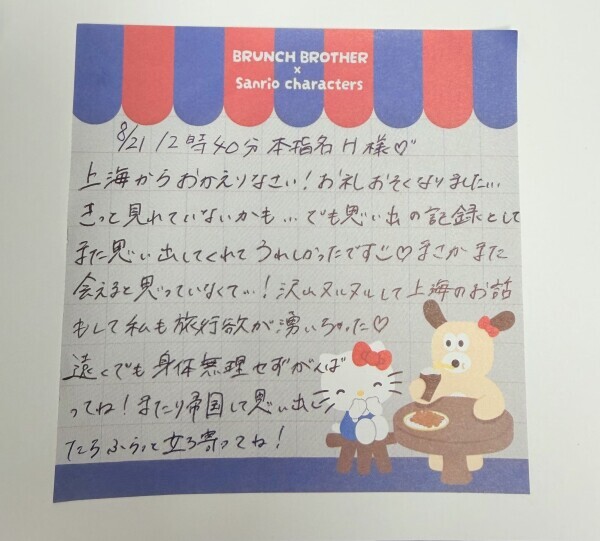 BRUNCH BROTHER
×
Sanrio characters
8/21 12時40分 本指名 H様♡
上海からおかえりなさい！お礼おそくなりました…
きっと見れていないかも…でも思い出の記録として
また思い出してくれてうれしかったです♡まさかまた
会えると思っていなくて…！沢山ヌルヌルして上海のお話
もして私も旅行欲が湧いちゃった♡
遠くでも身体無理せずがんば
ってね！またり帰国して思い出し
たらふらっと立ち寄ってね！